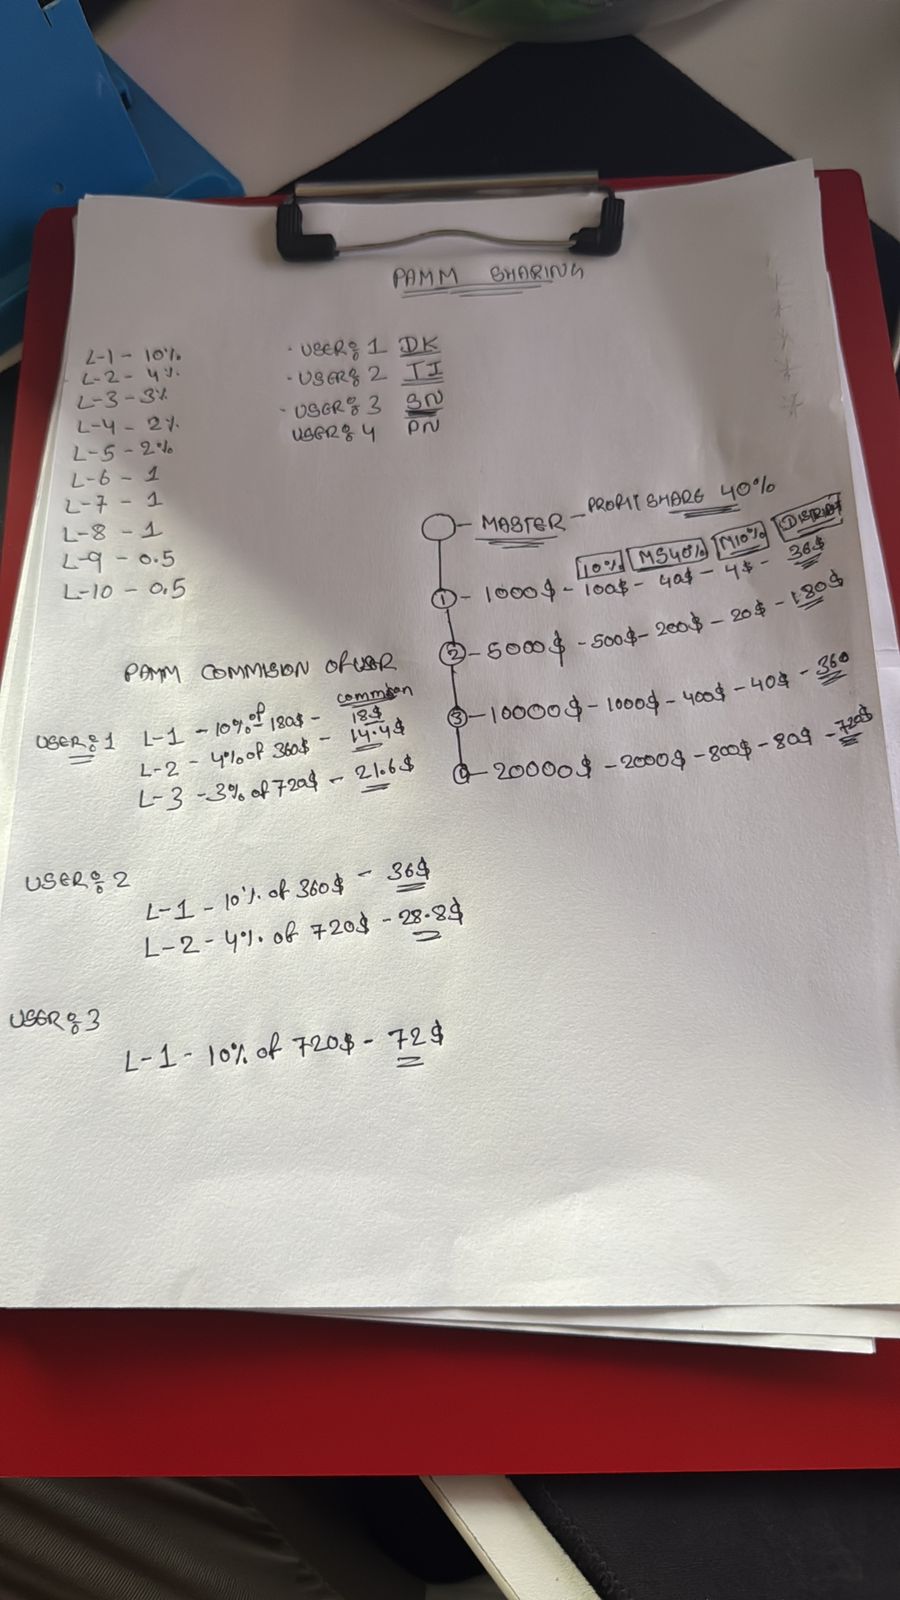 PAMM SHARING
L-1 - 10%
L-2 - 4%
L-3 - 3%
L-4 - 2%
L-5 - 2%
L-6 - 1
L-7 - 1
L-8 - 1
L-9 - 0.5
L-10 - 0.5
· USER: 1 DK
· USER: 2 II
· USER: 3 SN
USER: 4 PN
- MASTER - PROFIT SHARE 40%
10% MS40% M10% DISTRIBT
1 - 1000$ - 100$ - 40$ - 4$ - 36$
2 - 5000$ - 500$ - 200$ - 20$ - 180$
3 - 10000$ - 1000$ - 400$ - 40$ - 360
- 20000$ - 2000$ - 800$ - 80$ - 720$
PAMM COMMISION OF USR
commision
USER: 1 L-1 - 10% of 180$ - 18$
L-2 - 4% of 360$ - 14.4$
L-3 - 3% of 720$ - 21.6$
USER: 2
L-1 - 10% of 360$ - 36$
L-2 - 4% of 720$ - 28.8$
USER: 3
L-1 - 10% of 720$ - 72$